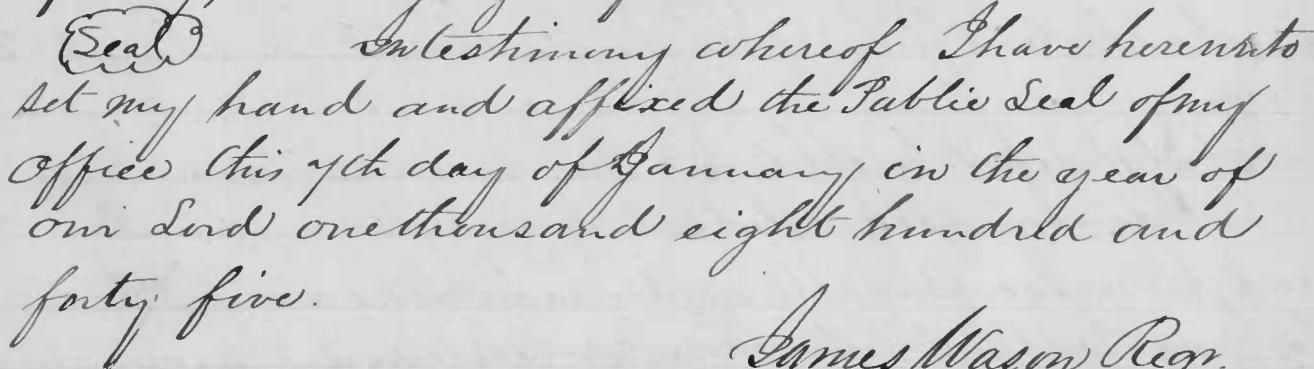 (Seal) In testimony whereof I have hereunto
set my hand and affixed the Public Seal of my
office this 7th day of January in the year of
our Lord one thousand eight hundred and
forty five.
James Wason Regr.